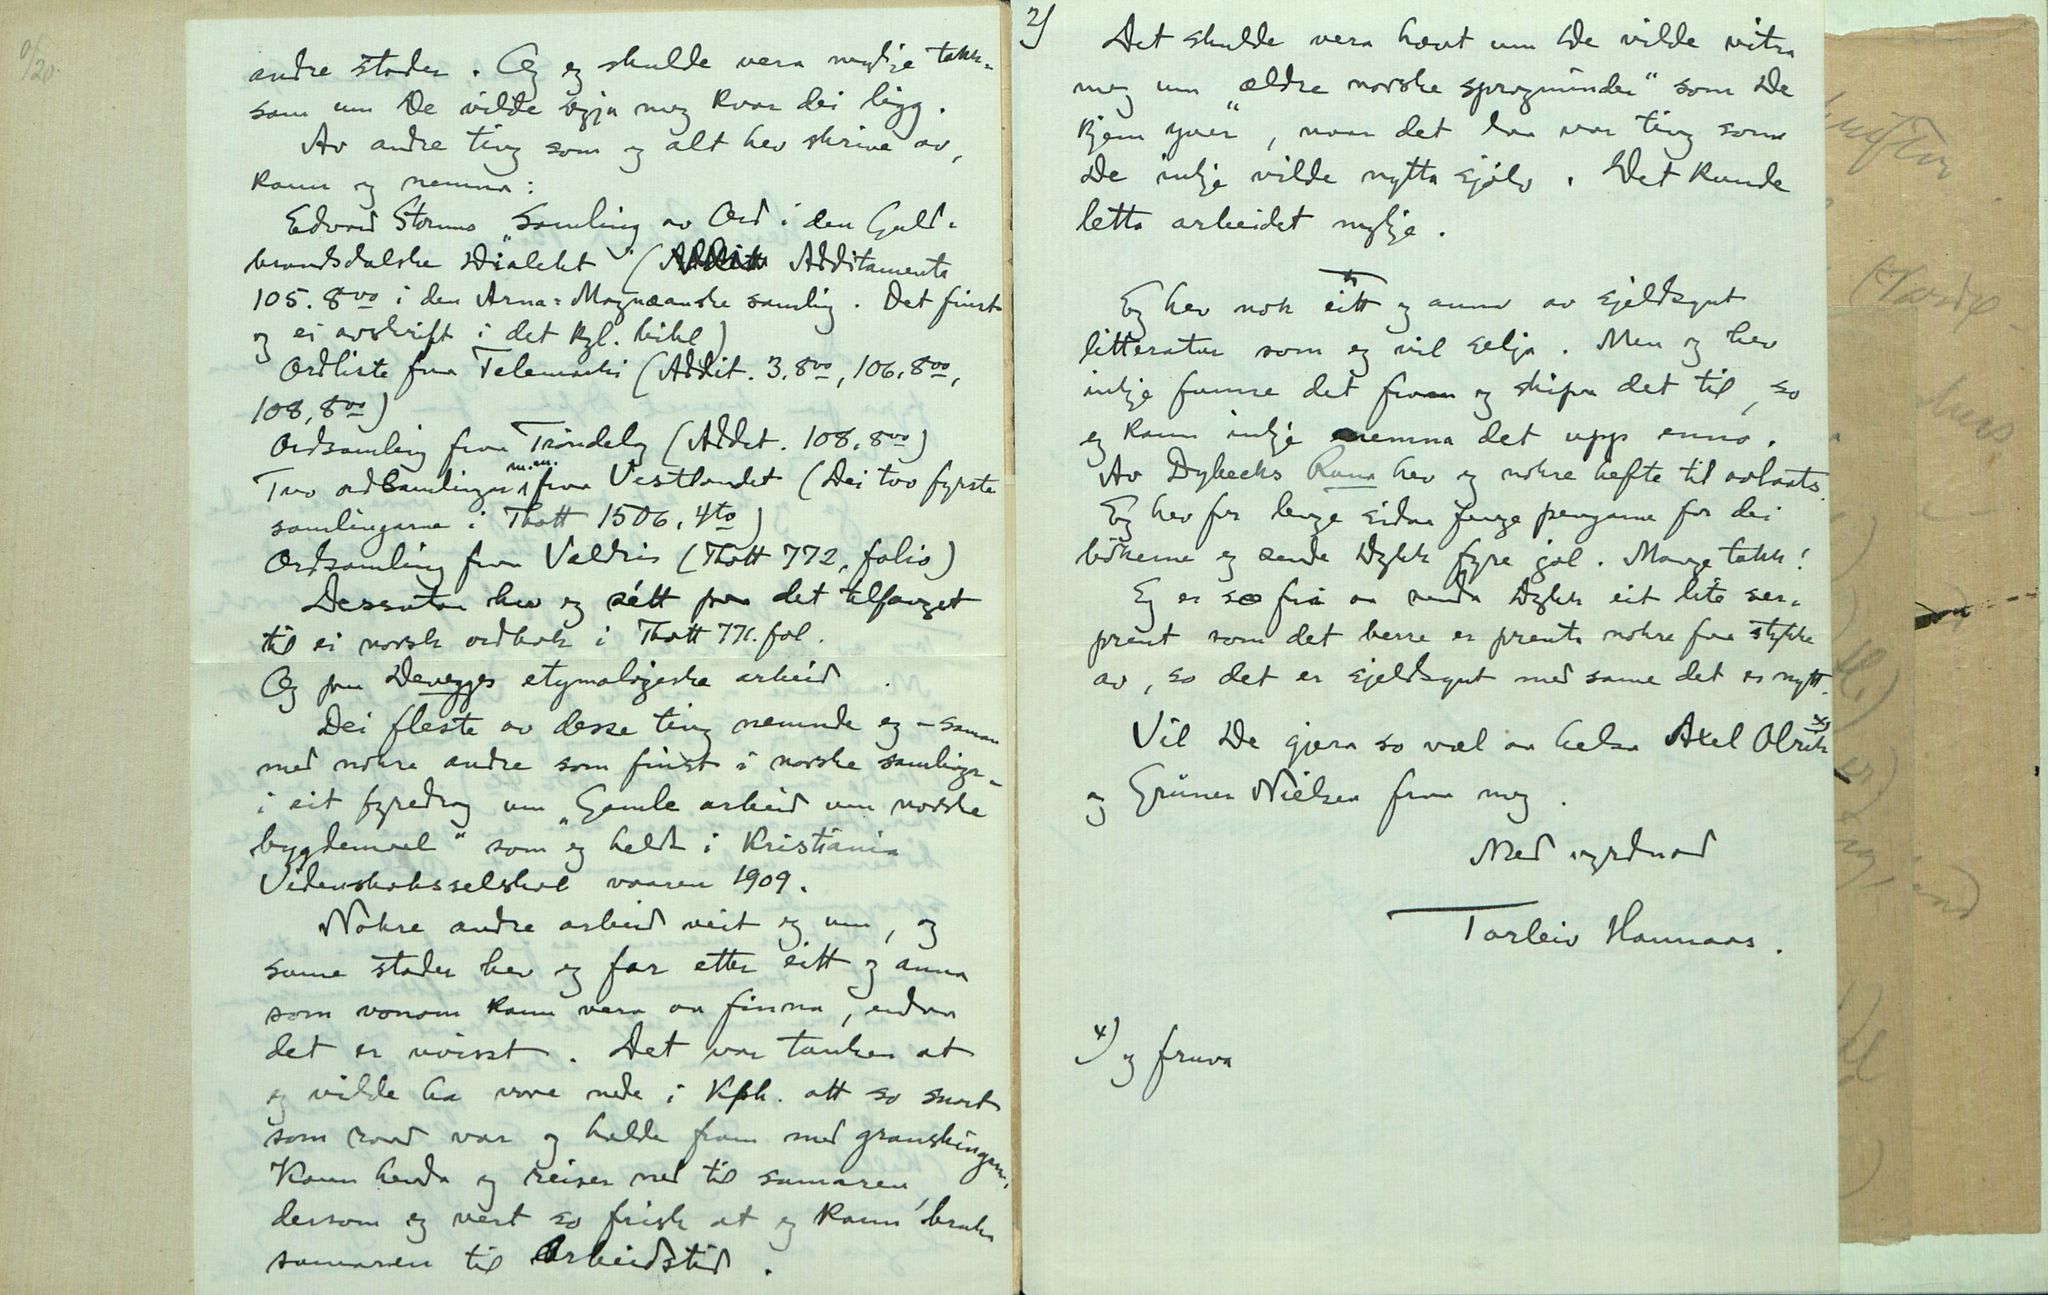 andre stader. Og eg skulde vera mykje takk-
sam um De vilde segja meg kvar dei ligg.
Av andre ting som eg alt hev skrive av,
kann eg nemna:
Edvard Storms „Samling av Ord i den Guld-
brandsdalske Dialekt" (Additamenta
105. 8vo i den Arna-Magnæanske samling. Det finst
og ei avskrift i det kgl. bibl)
Ordliste fraa Telemarki (Addit. 3. 8vo, 106. 8vo,
108, 8vo)
Ordsamling fraa Trøndelag (Addit. 108. 8vo)
Tvo ordsamlingar m.m. fraa Vestlandet (Dei tvo fyrste
samlingarne i Thott 1506. 4to)
Ordsamling fraa Valdris (Thott 772, folio)
Dessutan hev eg sétt paa det tilfanget
til ei norsk ordbok i Thott 771. fol.
Og paa Devegges etymologiske arbeid.
Dei fleste av desse ting nemnde eg – saman
med nokre andre som finst i norske samlingar –
i eit fyredrag um „Gamle arbeid um norske
bygdemaal" som eg heldt i Kristiania
Videnskabsselskab vaaren 1909.
Nokre andre arbeid veit eg um, og
sume stader hev eg far etter eitt og anna
som vonom kann vera aa finna, endaa
det er uvisst. Det var tanken at
eg vilde ha vore nede i Kph. att so snart
som raad var og halde fram med granskingane.
Kann henda eg reiser ned til sumaren,
dersom eg vert so frisk at eg kann bruka
sumaren til arbeidstid.
2)
Det skulde vera hævt um De vilde vitra
meg um „ældre norske sprogminder" som De
kjem yver, naar det daa var ting som
De inkje vilde nytta sjølv. Det kunde
letta arbeidet mykje.
Eg hev nok eitt og anna av sjeldsynt
litteratur som eg vil selja. Men eg hev
inkje funne det fram og skipa det til, so
eg kann inkje nemna det upp enno.
Av Dybecks Runa hev eg nokre hefte til avlaats.
Eg hev for lenge sidan fenge pengane for dei
bökerne eg sende Dykk fyre jol. Mange takk!
Eg er so fri aa senda Dykk eit lite ser-
prent som det berre er prenta nokre faa stykke
av, so det er sjeldsynt med same det er nytt.
Vil De gjera so væl aa helsa Axel Olrik x)
og Grüner Nielsen fraa meg.
Med vyrdnad
Torleiv Hannaas.
x) og fruva